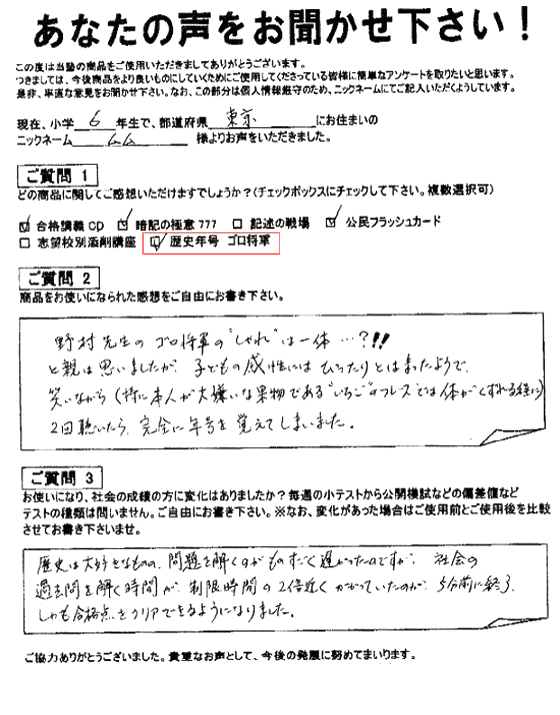 あなたの声をお聞かせ下さい！
この度は当塾の商品をご使用いただきましてありがとうございます。
つきましては、今後商品をより良いものにしていくためにご使用してくださっている皆様に簡単なアンケートを取りたいと思います。
是非、率直な意見をお聞かせ下さい。なお、この部分は個人情報厳守のため、ニックネームにてご記入いただくようしています。
現在、小学 6 年生で、都道府県 東京 にお住まいの
ニックネーム ムム 様よりお声をいただきました。
ご質問 1
どの商品に関してご感想いただけますでしょうか？(チェックボックスにチェックして下さい。複数選択可)
☑ 合格講義CD ☑ 暗記の極意 777 □ 記述の戦場 ☑ 公民フラッシュカード
□ 志望校別添削講座 ☑ 歴史年号 ゴロ将軍
ご質問 2
商品をお使いになられた感想をご自由にお書き下さい。
野村先生のゴロ将軍の"しゃれ"は一体…?!!
と親は思いましたが、子どもの感性にはぴったりとはまったようで、
笑いながら(特に本人が大嫌いな果物である"いちご"のフレーズでは体がくずれる程に)
2回聴いたら、完全に年号を覚えてしまいました。
ご質問 3
お使いになり、社会の成績の方に変化はありましたか？毎週の小テストから公開模試などの偏差値など
テストの種類は問いません。ご自由にお書き下さい。※なお、変化があった場合はご使用前とご使用後を比較
させてお書き下さいませ。
歴史は大好きなものの、問題を解くのがものすごく遅かったのですが、社会の
過去問を解く時間が、制限時間の2倍近くかかっていたのが、5分前に終了、
しかも合格点をクリアできるようになりました。
ご協力ありがとうございました。貴重なお声として、今後の発展に努めてまいります。